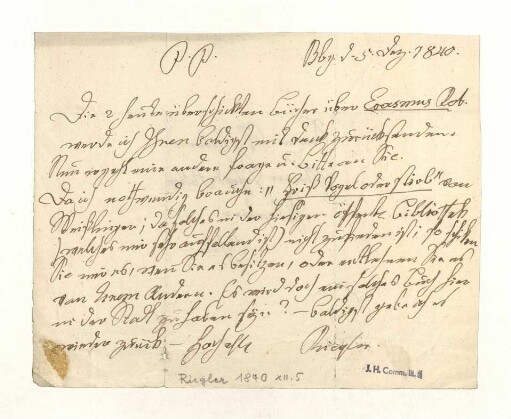 P. P. Bbg. d. 5. Dez. 1840.
Die 2 heute überschickten Bücher über Erasmus Rot.
werde ich Ihnen baldigst mit Dank zurücksenden.
Nun ergeht eine andere Frage u. Bitte an Sie.
Da ich nothwendig brauche: "Friß Vogel oder stirb" von
Weislinger; da solches in der hiesigen öffentl. Bibliothek
(welches mir sehr auffallend ist) nicht zu finden ist; so schicken
Sie mir es, wenn Sie es besitzen, oder entlehnen Sie es
von einem Andern. Es wird doch ein solches Buch hier
in der Stadt zu haben sein? – baldigst gebe ich es
wieder zurück. – Riegler.
Riegler 1840 XII. 5
J. H. Comm. lit.